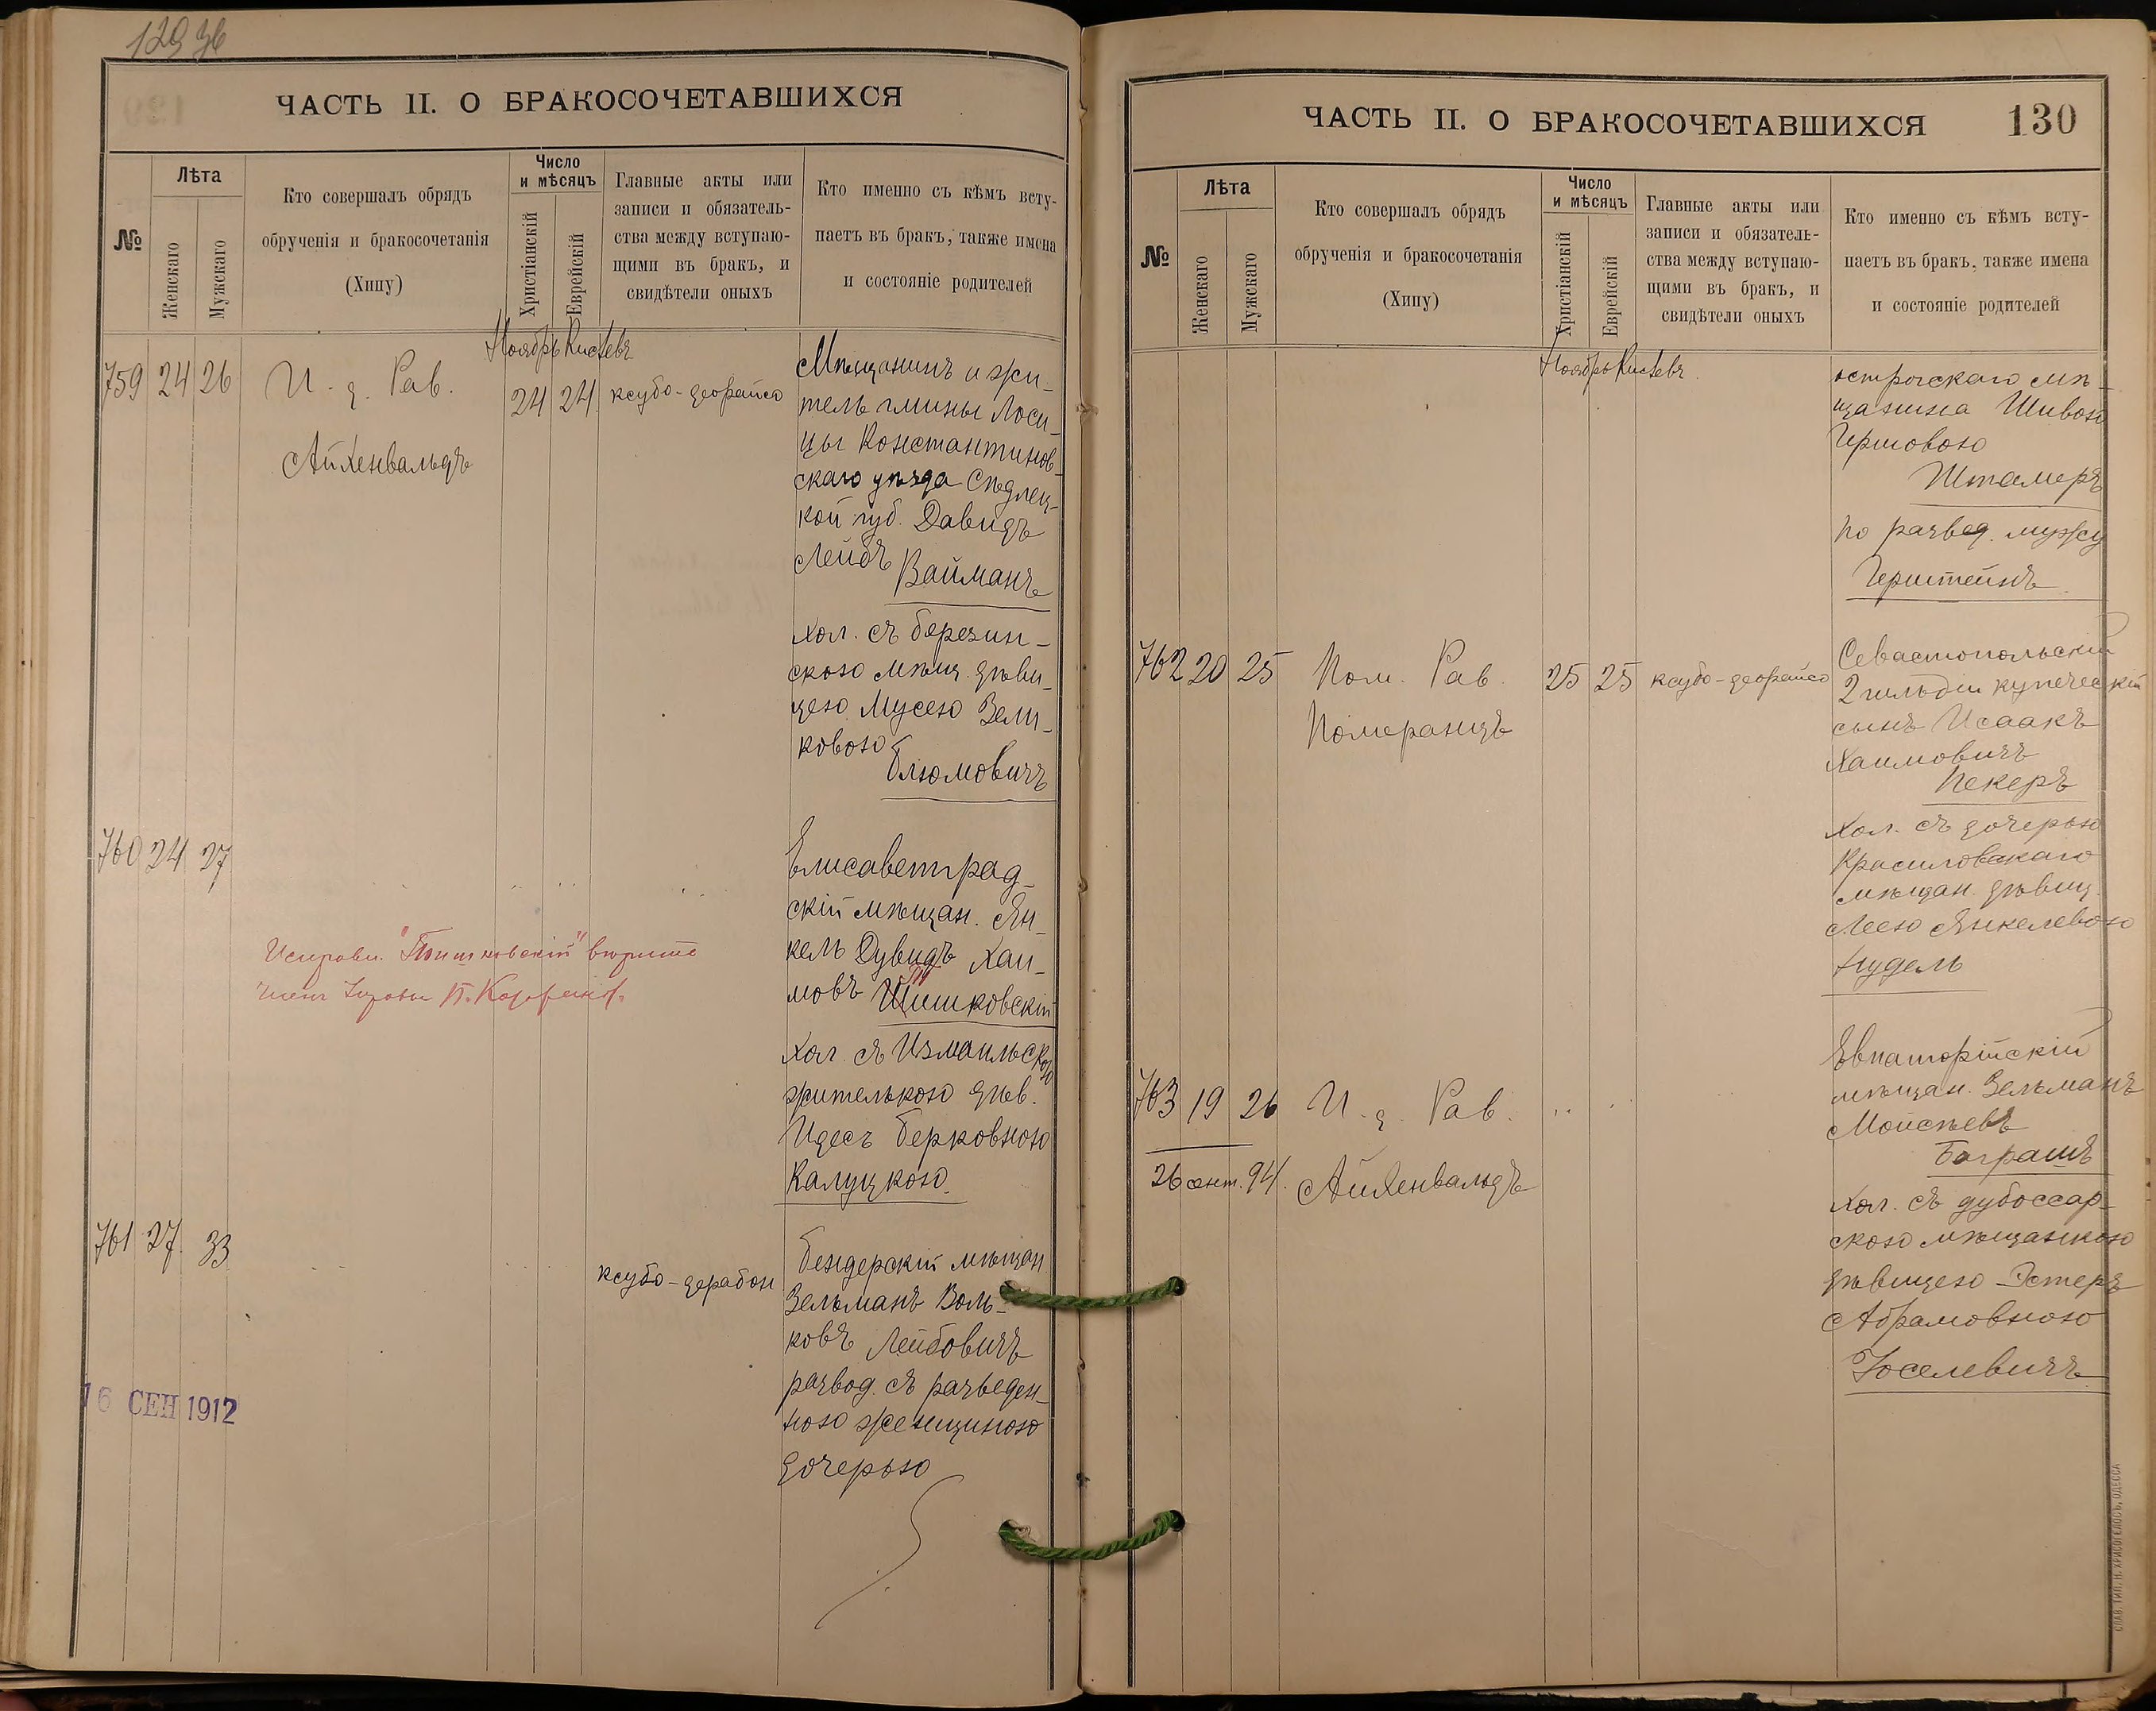 129 об
ЧАСТЬ II. О БРАКОСОЧЕТАВШИХСЯ
№
Лѣта
Женскаго
Мужскаго
Кто совершалъ обрядъ
обрученія и бракосочетанія
(Хипу)
Число
и мѣсяцъ
Христіанскій
Еврейскій
Главные акты или
записи и обязатель-
ства между вступаю-
щими въ бракъ, и
свидѣтели оныхъ
Кто именно съ кѣмъ всту-
паетъ въ бракъ, также имена
и состояніе родителей
Ноябрь Кислевъ
759 24 26
И. д. Рав.
Айхенвальдъ
24 24
ксубо-деорайсо
Мѣщанинъ и жи-
тель гмины Лоси-
цы Константинов-
скаго уѣзда Сѣдлец-
кой губ. Давидъ
Лейбъ
Вайманъ
хол. съ березин-
скою мѣщ. дѣви-
цею Мусею Зели-
ковою
Блюмовичъ
760 24 27
Елисаветград-
скій мѣщан. Ян-
кель Дувидъ Хаи-
мовъ Шишковскій
хол. съ Измаильскою
жителькою дѣв.
Идесъ Берковною
Калуцкою
Исправл. вѣрно
761 27 33
ксубо-дерабон
Бендерскій мѣщан
Зельманъ Воль-
ковъ Лейбовичъ
развод. съ разведен-
ною женщиною
дочерью
16 СЕН 1912
ЧАСТЬ II. О БРАКОСОЧЕТАВШИХСЯ
130
№
Лѣта
Женскаго
Мужскаго
Кто совершалъ обрядъ
обрученія и бракосочетанія
(Хипу)
Число
и мѣсяцъ
Христіанскій
Еврейскій
Главные акты или
записи и обязатель-
ства между вступаю-
щими въ бракъ, и
свидѣтели оныхъ
Кто именно съ кѣмъ всту-
паетъ въ бракъ, также имена
и состояніе родителей
Ноябрь Кислевъ
острогскаго мѣ-
щанина Шивою
Гершовою
Штамеръ
по развед. мужу
Герштейнъ
762 20 25
Пом. Рав.
Померанцъ
25 25
ксубо-деорайсо
Севастопольскій
2 гильдіи купеческій
сынъ Исаакъ
Хаимовичъ
Пекеръ
хол. съ дочерью
Красиловскаго
мѣщан. дѣвиц.
Леею Янкелевою
Нудель
763 19 26
И. д. Рав.
Айхенвальдъ
26 сент. 94.
Евпаторійскій
мѣщан. Зельманъ
Моисѣевъ
Баграшъ
хол. съ дубоссар-
скою мѣщанкою
дѣвицею Эстеръ
Абрамовною
Іоселевичъ
СЛАВ. ТИП. Н. ХРИСОГЕЛОСЪ, ОДЕССА